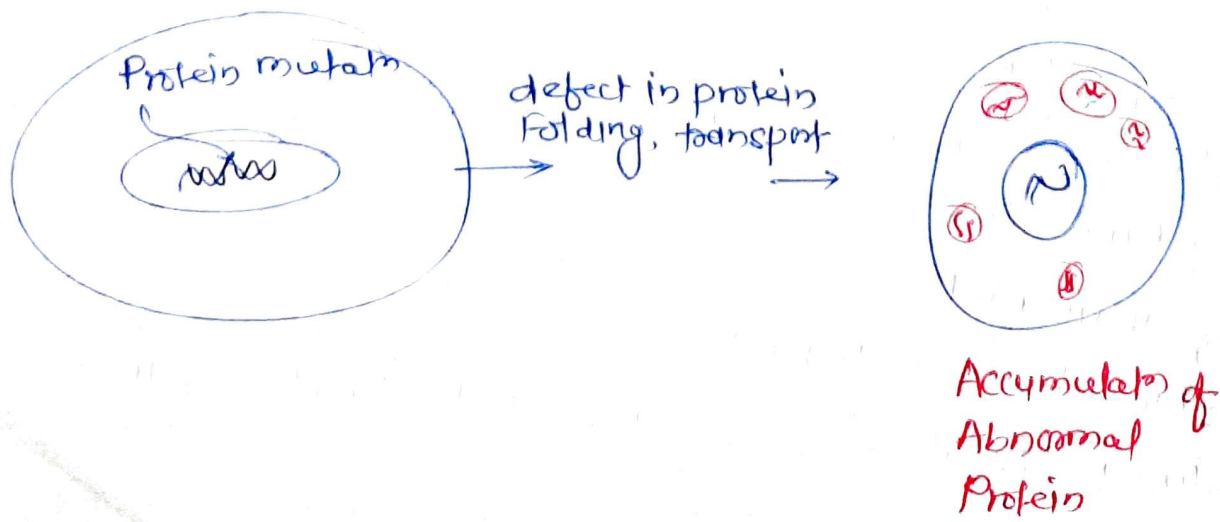 Protein mutatn
defect in protein
Folding, transport
Accumulatn of
Abnormal
Protein